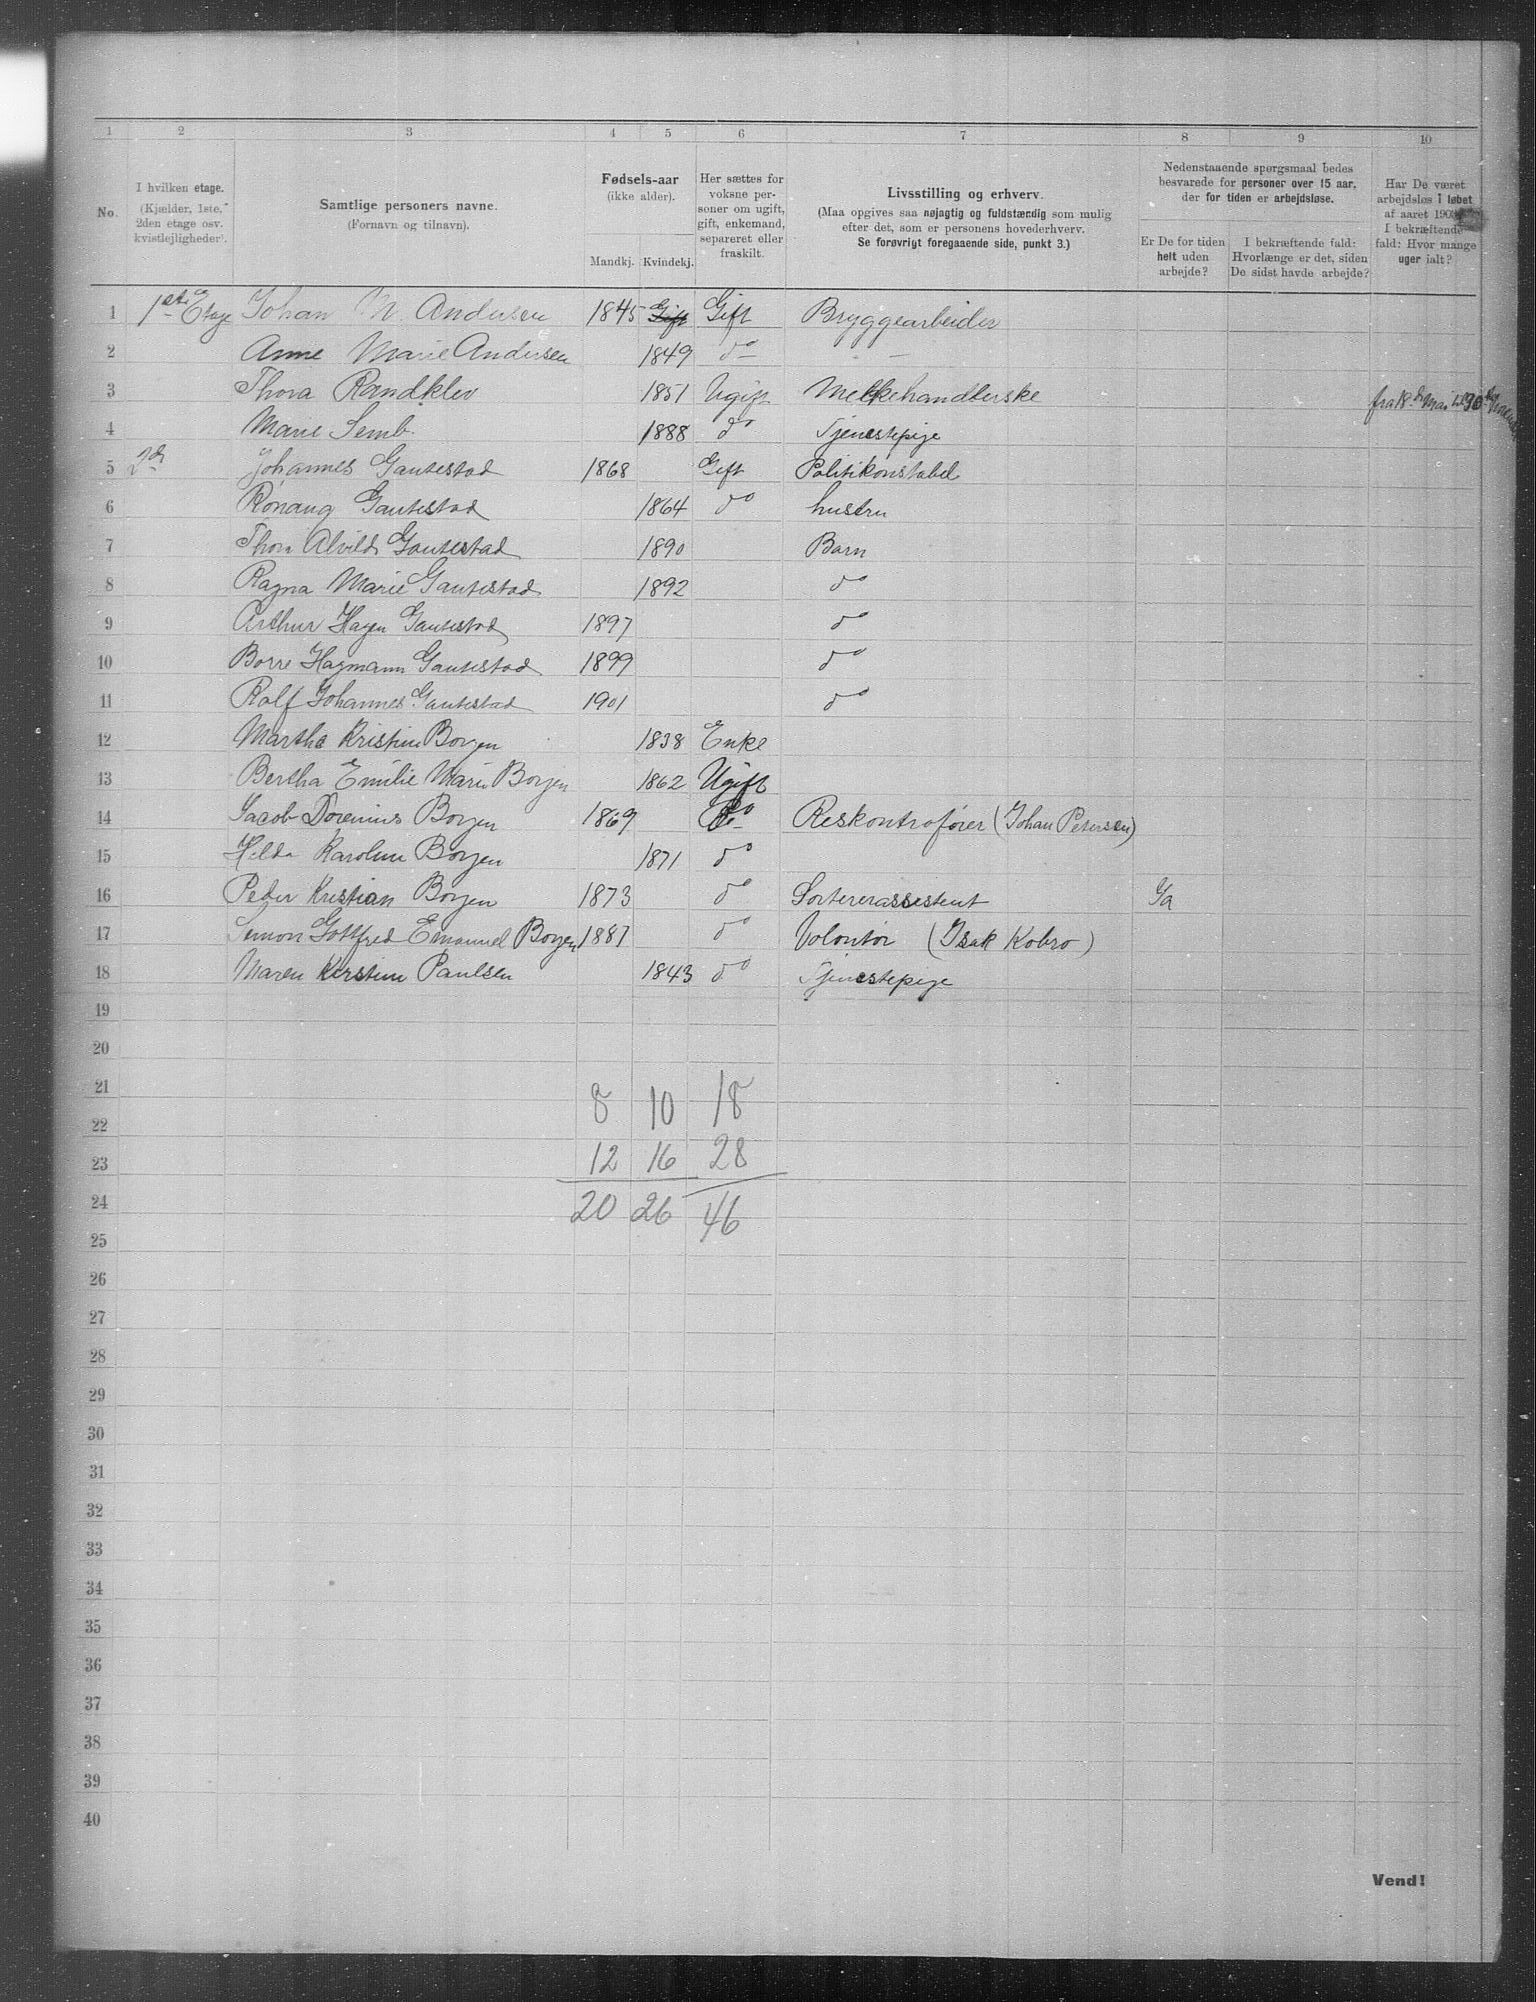 1 2 3 4 5 6 7 8 9 10
No.
I hvilken etage.
(Kjælder, 1ste,
2den etage osv.
kvistleiligheder).
Samtlige personers navne.
(Fornavn og tilnavn).
Fødsels-aar
(ikke alder).
Mandkj. Kvindekj.
Her sættes for
voksne per-
soner om ugift,
gift, enkemand,
separeret eller
fraskilt.
Livsstilling og erhverv.
(Maa opgives saa nøjagtig og fuldstændig som mulig
efter det, som er personens hovederhverv.
Se forøvrigt foregaaende side, punkt 3.)
Nedenstaaende spørgsmaal bedes
besvarede for personer over 15 aar,
der for tiden er arbejdsløse.
Er De for tiden
helt uden
arbejde?
I bekræftende fald:
Hvorlænge er det, siden
De sidst havde arbejde?
Har De været
arbejdsløs i løbet
af aaret 190
I bekræftende
fald: Hvor mange
uger ialt?
1 1ste Etage Johan N. Andersen 1845 Gift Gift Bryggearbeider
2 Anne Marie Andersen 1849 do —
3 Thora Randklev 1851 Ugift Melkehandlerske fra 18de Mai til 30
4 Marie Semb 1888 do Tjenestepige
5 2d Johannes Gautestad 1868 Gift Politikonstabel
6 Gautestad 1864 do hustru
7 Thora Alvild Gautestad 1890 Barn
8 Ragna Marie Gautestad 1892 do
9 Arthur Hagen Gautestad 1897 do
10 Borre Hagmann Gautestad 1899 do
11 Ralf Johannes Gautestad 1901 do
12 Martha Kristine Borgen 1838 Enke
13 Bertha Emilie Marie Borgen 1862 Ugift
14 Jacob Dorenius Borgen 1869 do Reskontrofører (Johan Petersen)
15 Hilda Karoline Borgen 1871 do
16 Peder Kristian Borgen 1873 do Sortererassistent Ja
17 Simon Gottfred Emanuel Borgen 1881 do Volontør (Isak Kobro)
18 Maren Kirstine Paulsen 1843 do Tjenestepige
19
20
21 8 10 18
22
23 12 16 28
24 20 26 46
25
26
27
28
29
30
31
32
33
34
35
36
37
38
39
40
Vend!